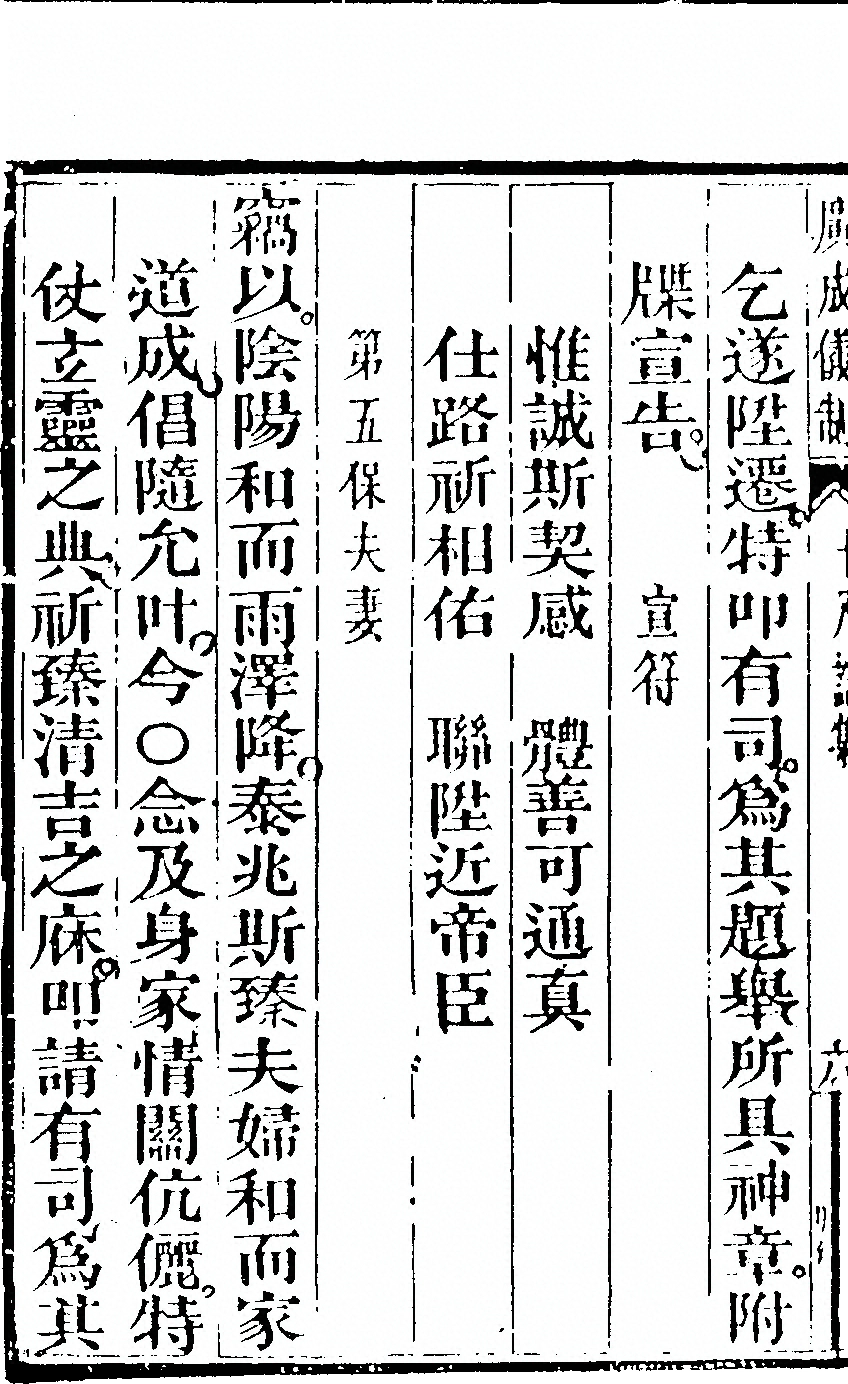 廣成儀制
六
乞遂陞遷特叩有司爲其題舉所具神章附
牒宣告 宣符
惟誠斯契感 體善可通真
仕路祈相佑 聯陞近帝臣
第五保夫妻
竊以陰陽和而雨澤降泰兆斯臻夫婦和而家
道成倡隨允叶今〇念及身家情關伉儷特
仗玄靈之典祈臻清吉之庥叩請有司爲其